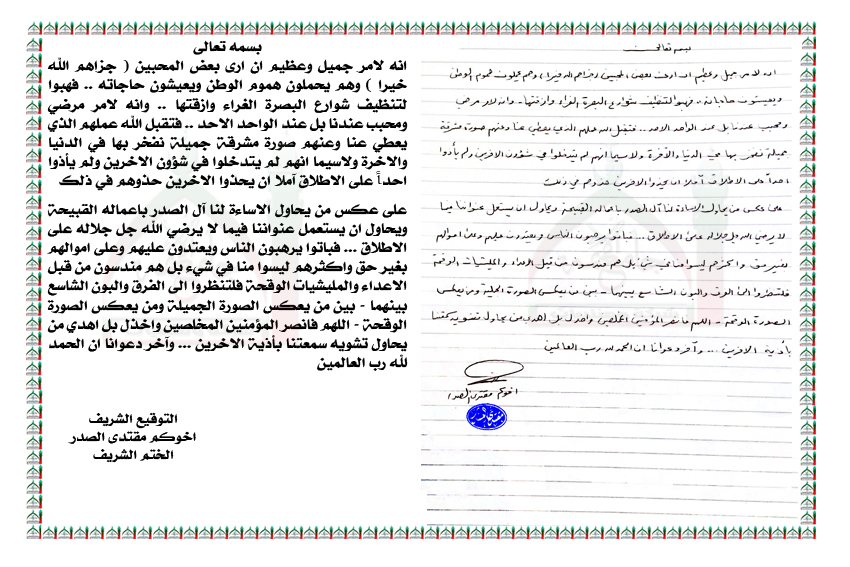 بسمه تعالى
انه لامر جميل وعظيم ان ارى بعض المحبين ( جزاهم الله
خيرا ) وهم يحملون هموم الوطن ويعيشون حاجاته .. فهبوا
لتنظيف شوارع البصرة الغراء وازقتها .. وانه لامر مرضي
ومحبب عندنا بل عند الواحد الاحد .. فتقبل الله عملهم الذي
يعطي عنا وعنهم صورة مشرقة جميلة نفخر بها في الدنيا
والاخرة ولاسيما انهم لم يتدخلوا في شؤون الاخرين ولم يأذوا
احداً على الاطلاق آملا ان يحذوا الاخرين حذوهم في ذلك
على عكس من يحاول الاساءة لنا آل الصدر باعماله القبيحة
ويحاول ان يستعمل عنواننا فيما لا يرضي الله جل جلاله على
الاطلاق ... فباتوا يرهبون الناس ويعتدون عليهم وعلى اموالهم
بغير حق واكثرهم ليسوا منا في شيء بل هم مندسون من قبل
الاعداء والمليشيات الوقحة فلتنظروا الى الفرق والبون الشاسع
بينهما - بين من يعكس الصورة الجميلة ومن يعكس الصورة
الوقحة - اللهم فانصر المؤمنين المخلصين واخذل بل اهدي من
يحاول تشويه سمعتنا بأذية الاخرين ... وآخر دعوانا ان الحمد
لله رب العالمين
التوقيع الشريف
اخوكم مقتدى الصدر
الختم الشريف
بسمه تعالى
انه لامر جميل وعظيم ان ارى بعض المحبين (جزاهم الله خيرا) وهم يحملون هموم الوطن
ويعيشون حاجاته .. فهبوا لتنظيف شوارع البصرة الغراء وازقتها .. وانه لامر مرضي
ومحبب عندنا بل عند الواحد الاحد .. فتقبل الله عملهم الذي يعطي عنا وعنهم صورة مشرقة
جميلة نفخر بها في الدنيا والآخرة ولاسيما انهم لم يتدخلوا في شؤون الآخرين ولم يأذوا
احداً على الاطلاق آملا ان يحذوا الآخرين حذوهم في ذلك
على عكس من يحاول الاساءة لنا آل الصدر باعماله القبيحة ويحاول ان يستعمل عنواننا فيما
لا يرضي الله جل جلاله على الاطلاق ... فباتوا يرهبون الناس ويعتدون عليهم وعلى اموالهم
بغير حق واكثرهم ليسوا منا في شيء بل هم مندسون من قبل الاعداء والمليشيات الوقحة
فلتنظروا الى الفرق والبون الشاسع بينهما - بين من يعكس الصورة الجميلة ومن يعكس
الصورة الوقحة - اللهم فانصر المؤمنين المخلصين واخذل بل اهدي من يحاول تشويه سمعتنا
بأذية الآخرين ... وآخر دعوانا ان الحمد لله رب العالمين
اخوكم مقتدى الصدر